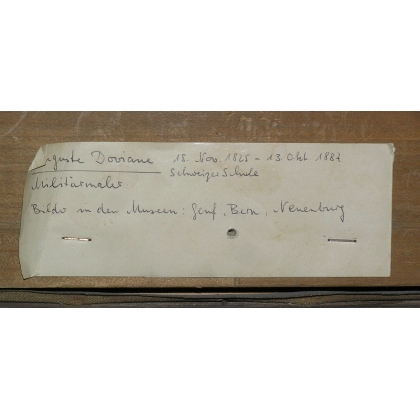 uguste Doviane 15. Nov. 1825 - 13. Okt. 1887
Militärmaler Schweizer Schule
Bilder in den Museen: Genf, Bern, Neuenburg